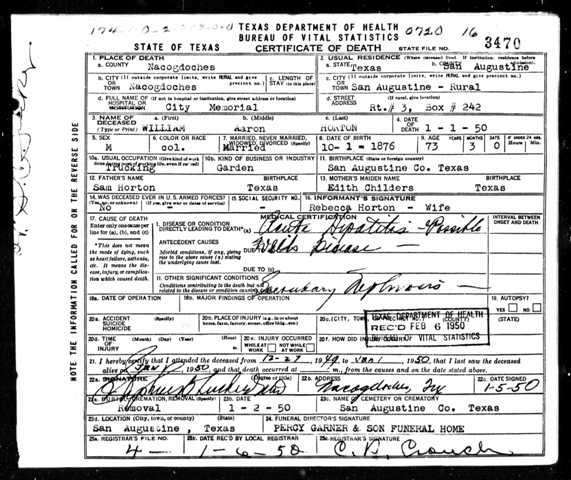 TEXAS DEPARTMENT OF HEALTH
BUREAU OF VITAL STATISTICS
0720 16
STATE OF TEXAS CERTIFICATE OF DEATH STATE FILE NO. 3470
1. PLACE OF DEATH 2. USUAL RESIDENCE (Where deceased lived. If institution: residence before
a. COUNTY Nacogdoches a. STATE Texas San Augustine
b. CITY (If outside corporate limits, write RURAL and give precinct no.) OR TOWN Nacogdoches c. LENGTH OF STAY (in this place) c. CITY (If outside corporate limits, write RURAL and give precinct no.) OR TOWN San Augustine - Rural
d. FULL NAME OF (If not in hospital or institution, give street address or location) HOSPITAL OR INSTITUTION City Memorial d. STREET ADDRESS (If rural, give location) Rt.# 3, Box # 242
3. NAME OF DECEASED (Type or Print) a. (First) WILLIAM b. (Middle) Aaron c. (Last) HORTON 4. DATE OF DEATH 1-1-50
5. SEX M 6. COLOR OR RACE col. 7. MARRIED, NEVER MARRIED, WIDOWED, DIVORCED (Specify) Married 8. DATE OF BIRTH 10-1-1876 9. AGE YEARS 73 MONTHS 3 DAYS 0 Hours Min.
10a. USUAL OCCUPATION (Give kind of work done during most of working life, even if retired) Trucking 10b. KIND OF BUSINESS OR INDUSTRY Garden 11. BIRTHPLACE (State or foreign country) San Augustine Co. Texas
12. FATHER'S NAME Sam Horton BIRTHPLACE Texas 13. MOTHER'S MAIDEN NAME Edith Childers BIRTHPLACE Texas
14. WAS DECEASED EVER IN U.S. ARMED FORCES? No 15. SOCIAL SECURITY NO. - 16. INFORMANT'S SIGNATURE Rebecca Horton - Wife
17. CAUSE OF DEATH MEDICAL CERTIFICATION INTERVAL BETWEEN ONSET AND DEATH
Enter only one cause per line for (a), (b), and (c)
I. DISEASE OR CONDITION DIRECTLY LEADING TO DEATH* (a) Acute Hepatitis - Possible
*This does not mean the mode of dying, such as heart failure, asthenia, etc. It means the disease, injury, or complication which caused death.
ANTECEDENT CAUSES
Morbid conditions, if any, giving rise to the above cause (a) stating the underlying cause last.
DUE TO (b) Weil's Disease -
DUE TO (c)
II. OTHER SIGNIFICANT CONDITIONS
Conditions contributing to the death but not related to the disease or condition causing death. Secondary Nephrosis -
18a. DATE OF OPERATION 18b. MAJOR FINDINGS OF OPERATION 19. AUTOPSY? YES NO
20a. ACCIDENT SUICIDE HOMICIDE (Specify) 20b. PLACE OF INJURY (e.g., in or about home, farm, factory, street, office bldg., etc.) 20c. (CITY, TOWN (STATE)
TEXAS DEPARTMENT OF HEALTH
REC'D FEB 6 1950
BUREAU OF VITAL STATISTICS
20d. TIME OF INJURY (Month) (Day) (Year) (Hour) 20e. INJURY OCCURRED WHILE AT WORK NOT WHILE AT WORK 20f. HOW DID INJURY
21. I hereby certify that I attended the deceased from 12-27, 1949, to Jan 1, 1950, that I last saw the deceased
alive on Jan 1 1950, and that death occurred at m., from the causes and on the date stated above.
22a. SIGNATURE (Degree or title) 22b. ADDRESS Nacogdoches, Tex 22c. DATE SIGNED 1-5-50
23a. BURIAL, CREMATION, REMOVAL (Specify) Removal 23b. DATE 1-2-50 23c. NAME OF CEMETERY OR CREMATORY San Augustine Co. Texas
23d. LOCATION (City, town, or county) (State) San Augustine, Texas 24. FUNERAL DIRECTOR'S SIGNATURE PERCY GARNER & SON FUNERAL HOME
25a. REGISTRAR'S FILE NO. 4- 25b. DATE REC'D BY LOCAL REGISTRAR 1-6-50 25c. REGISTRAR'S SIGNATURE C. B. Crouch
NOTE THE INFORMATION CALLED FOR ON THE REVERSE SIDE